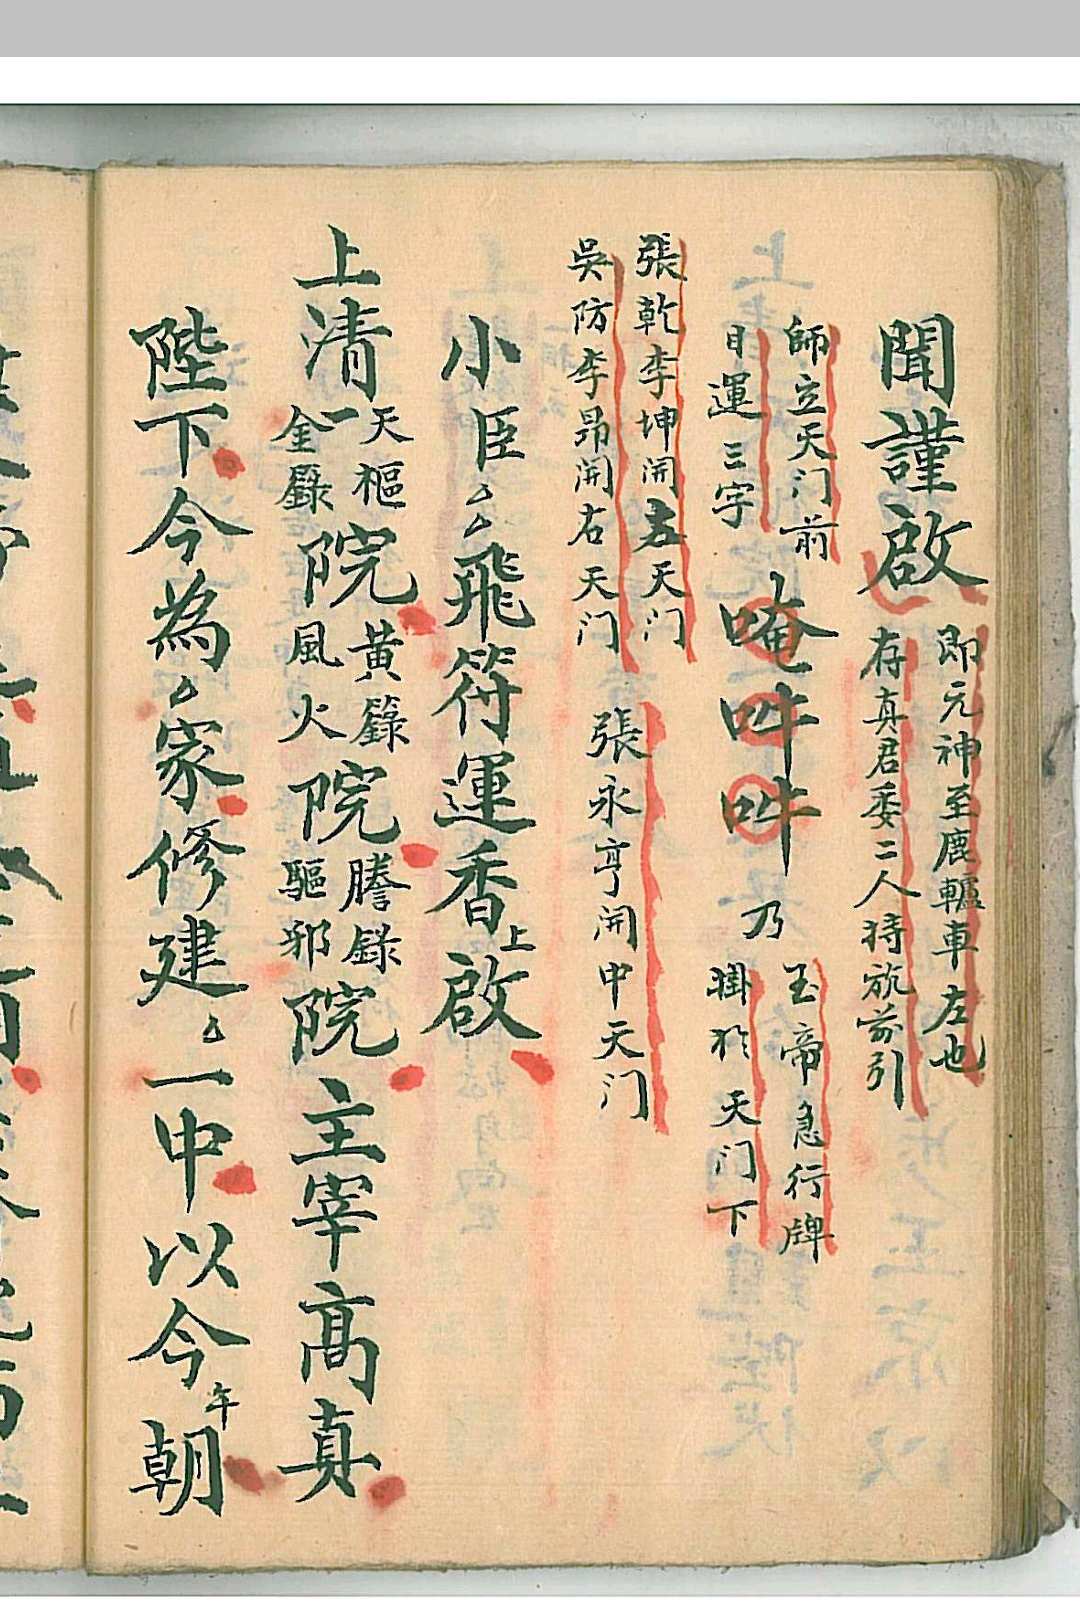 聞謹啟
即元神至鹿轤車左也
存真君委二人持旒前引
師立天门前
目運三字
唵吽吽
乃
玉帝急行牌
掛於天门下
張乾李坤開左天门
吳防李昴開右天门
張永亨開中天门
小臣厶厶飛符運香上啟
上清天樞院黃籙院謄錄院主宰高真
金籙風火驅邪
陛下今為厶家修建厶一中以今午朝